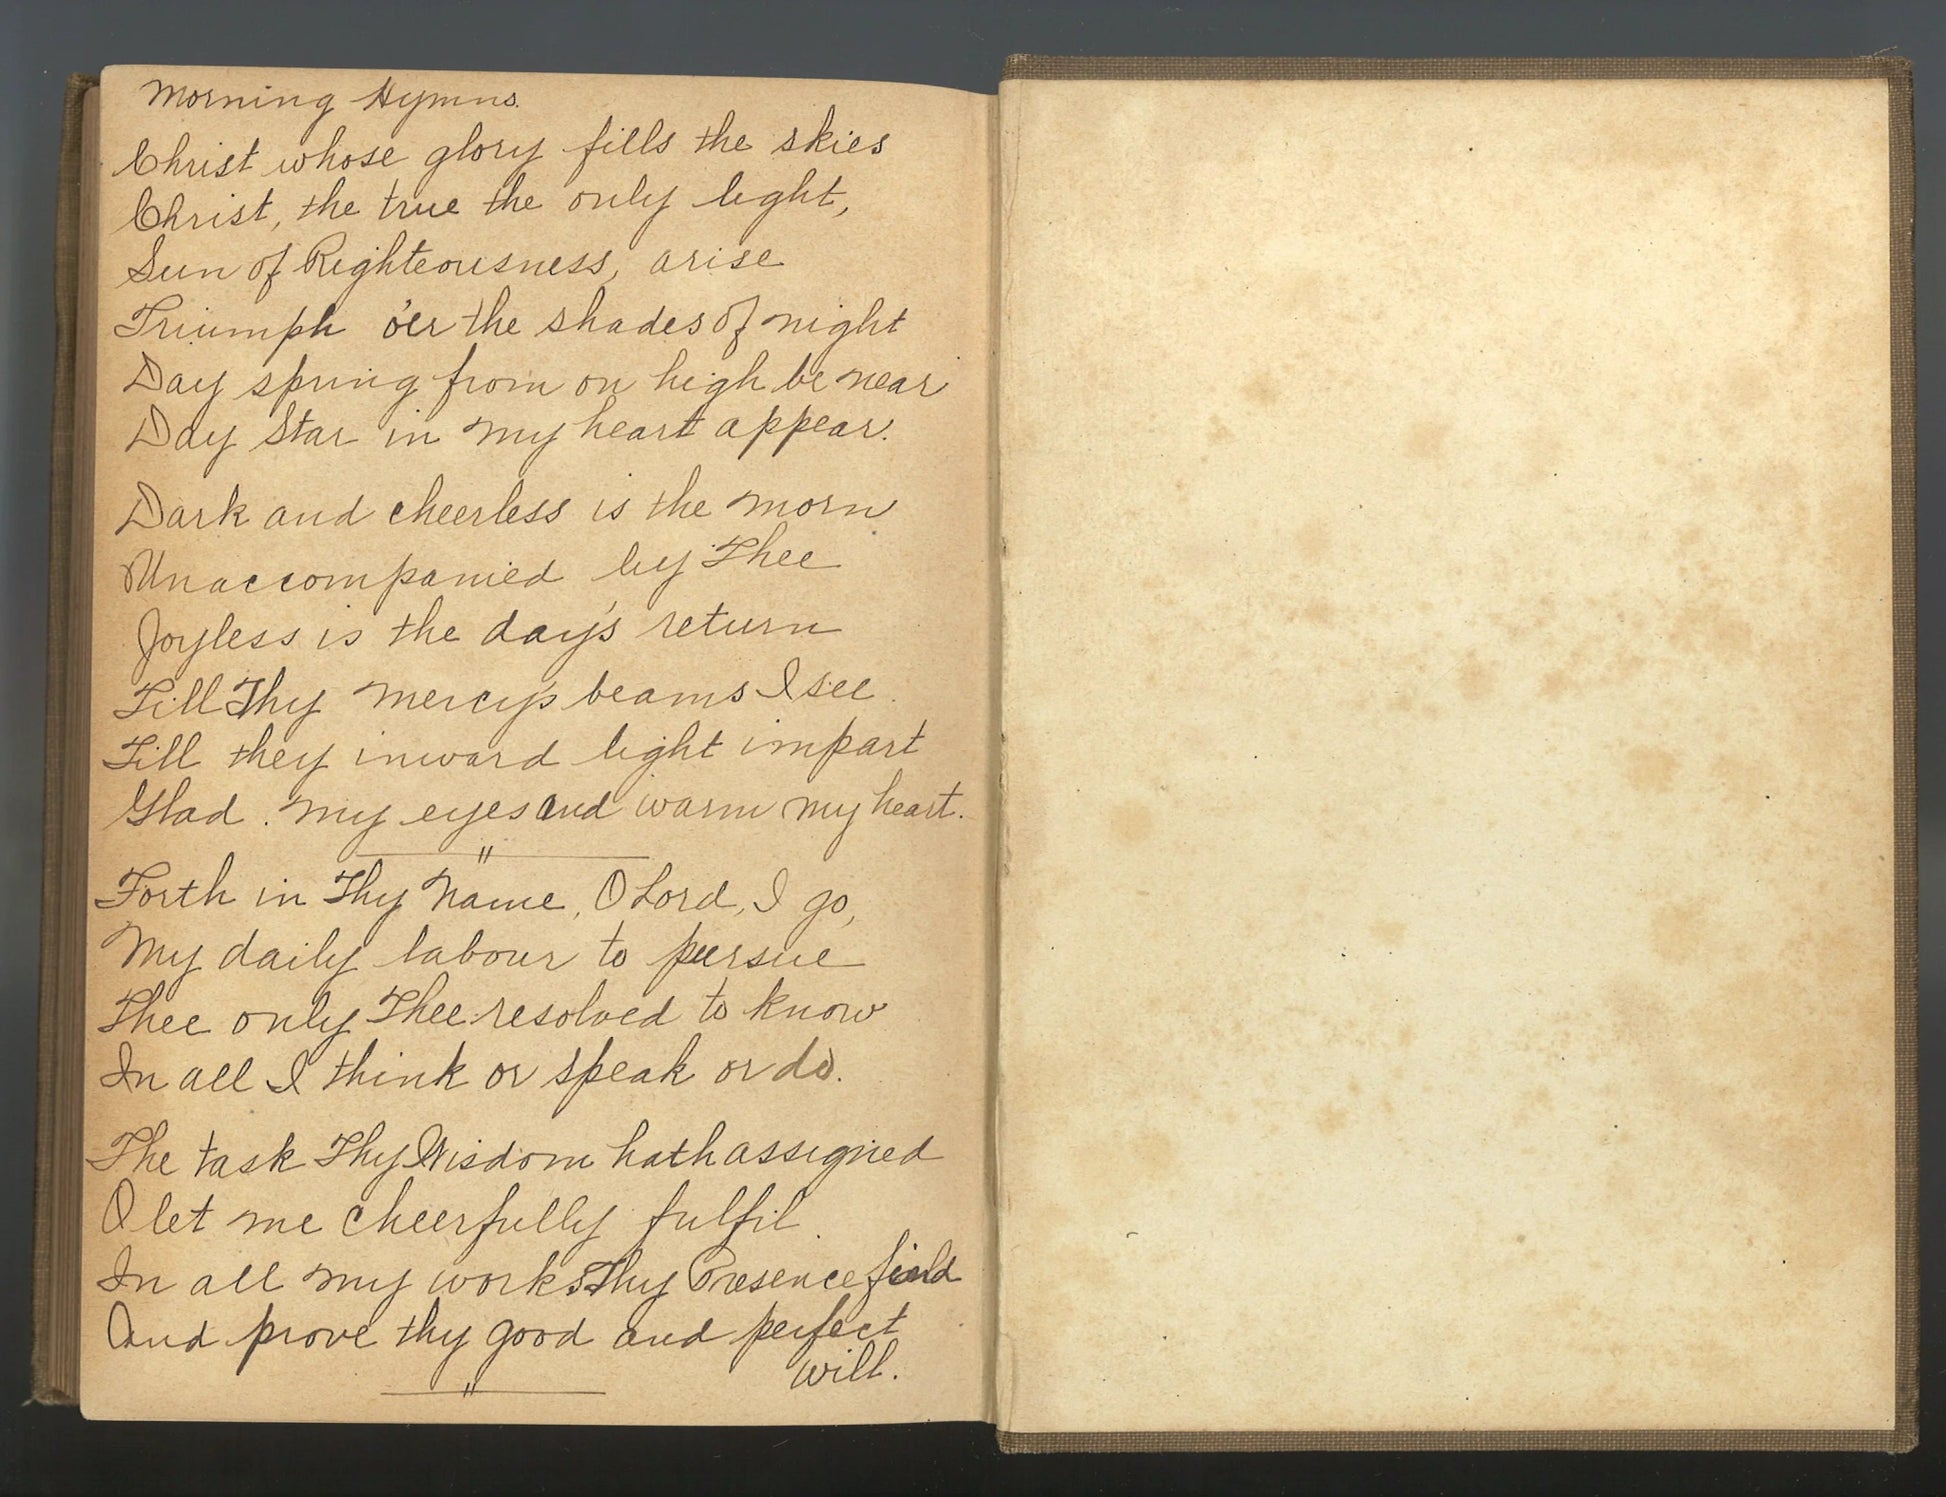 Morning Hymns.
Christ whose glory fills the skies
Christ, the true the only light,
Sun of Righteousness, arise
Triumph o'er the shades of night
Day spring from on high be near
Day Star in my heart appear.
Dark and cheerless is the morn
Unaccompanied by Thee
Joyless is the day's return
Till Thy mercy's beams I see.
Till they inward light impart
Glad my eyes and warm my heart.
"
Forth in Thy Name, O Lord, I go,
My daily labour to pursue
Thee only Thee resolved to know
In all I think or speak or do.
The task Thy Wisdom hath assigned
O let me cheerfully fulfil.
In all my works Thy Presence find
And prove thy good and perfect
will.
"